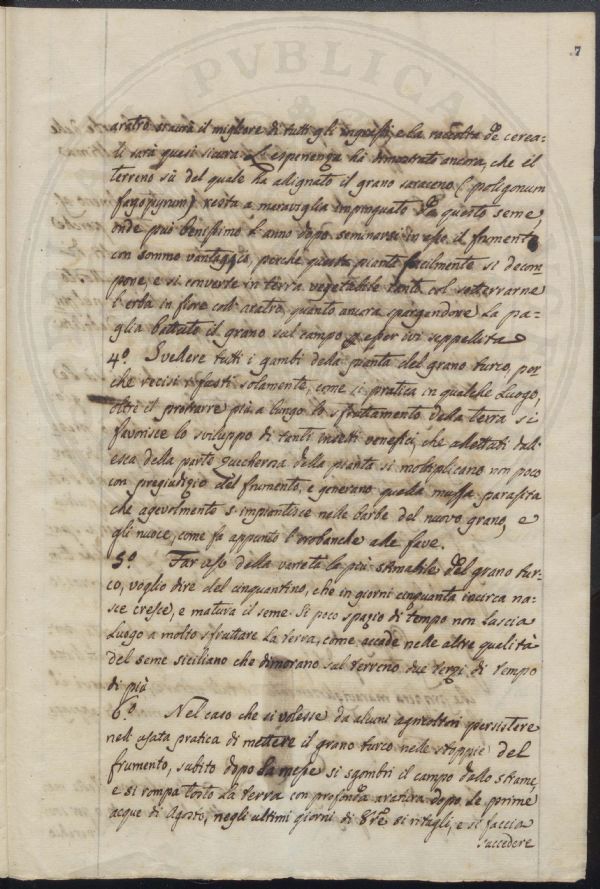 7
PVBLICA
aratro sarà il migliore di tutti gli ingrassi, e la raccolta de cerea-
li sarà quasi sicura. L'esperienza hà dimostrato ancora, che il
terreno sù del quale ha allignato il grano saraceno (poligonum
fagopyrum) resta a maraviglia impinguato da questo seme,
onde può benissimo l'anno dopo seminarsi in esso il frumento
con sommo vantaggio, perche questa pianta facilmente si decom-
pone, e si converte in terra vegetabile tanto col sotterrarne
l'erba in fiore coll'aratro, quanto ancora spargendone la pa-
glia battuto il grano sul campo per esser ivi seppellita
4.º Svellere tutti i gambi della pianta del grano turco, per
che recisi i fusti solamente, come si pratica in qualche luogo,
oltre il protrarre più a lungo lo sfruttamento della terra si
favorisce lo sviluppo di tanti insetti venefici, che allettati dall'
esca della parte zuccherosa della pianta si moltiplicano non poco
con pregiudizio del frumento, e generano quella muffa parasita
che agevolmente s'impiantisce nelle barbe del nuovo grano, e
gli nuoce, come fa appunto l'orobanche alle fave.
5.º Far uso della varietà la più stimabile del grano tur-
co, voglio dire del cinquantino, che in giorni cinquanta incirca na-
sce cresce, e matura il seme. Sì poco spazio di tempo non lascia
luogo a molto sfruttare la terra, come accade nelle altre qualità
del seme siciliano che dimorano sul terreno due terzi di tempo
di più
6.º Nel caso che si volesse da alcuni agricoltori persistere
nell'usata pratica di mettere il grano turco nelle stoppie del
frumento, subito dopo la messe si sgombri il campo dallo strame,
e si rompa tosto la terra con profonda aratura dopo le prime
acque di Agosto, negli ultimi giorni di 8bre si ritagli, e si faccia
succedere